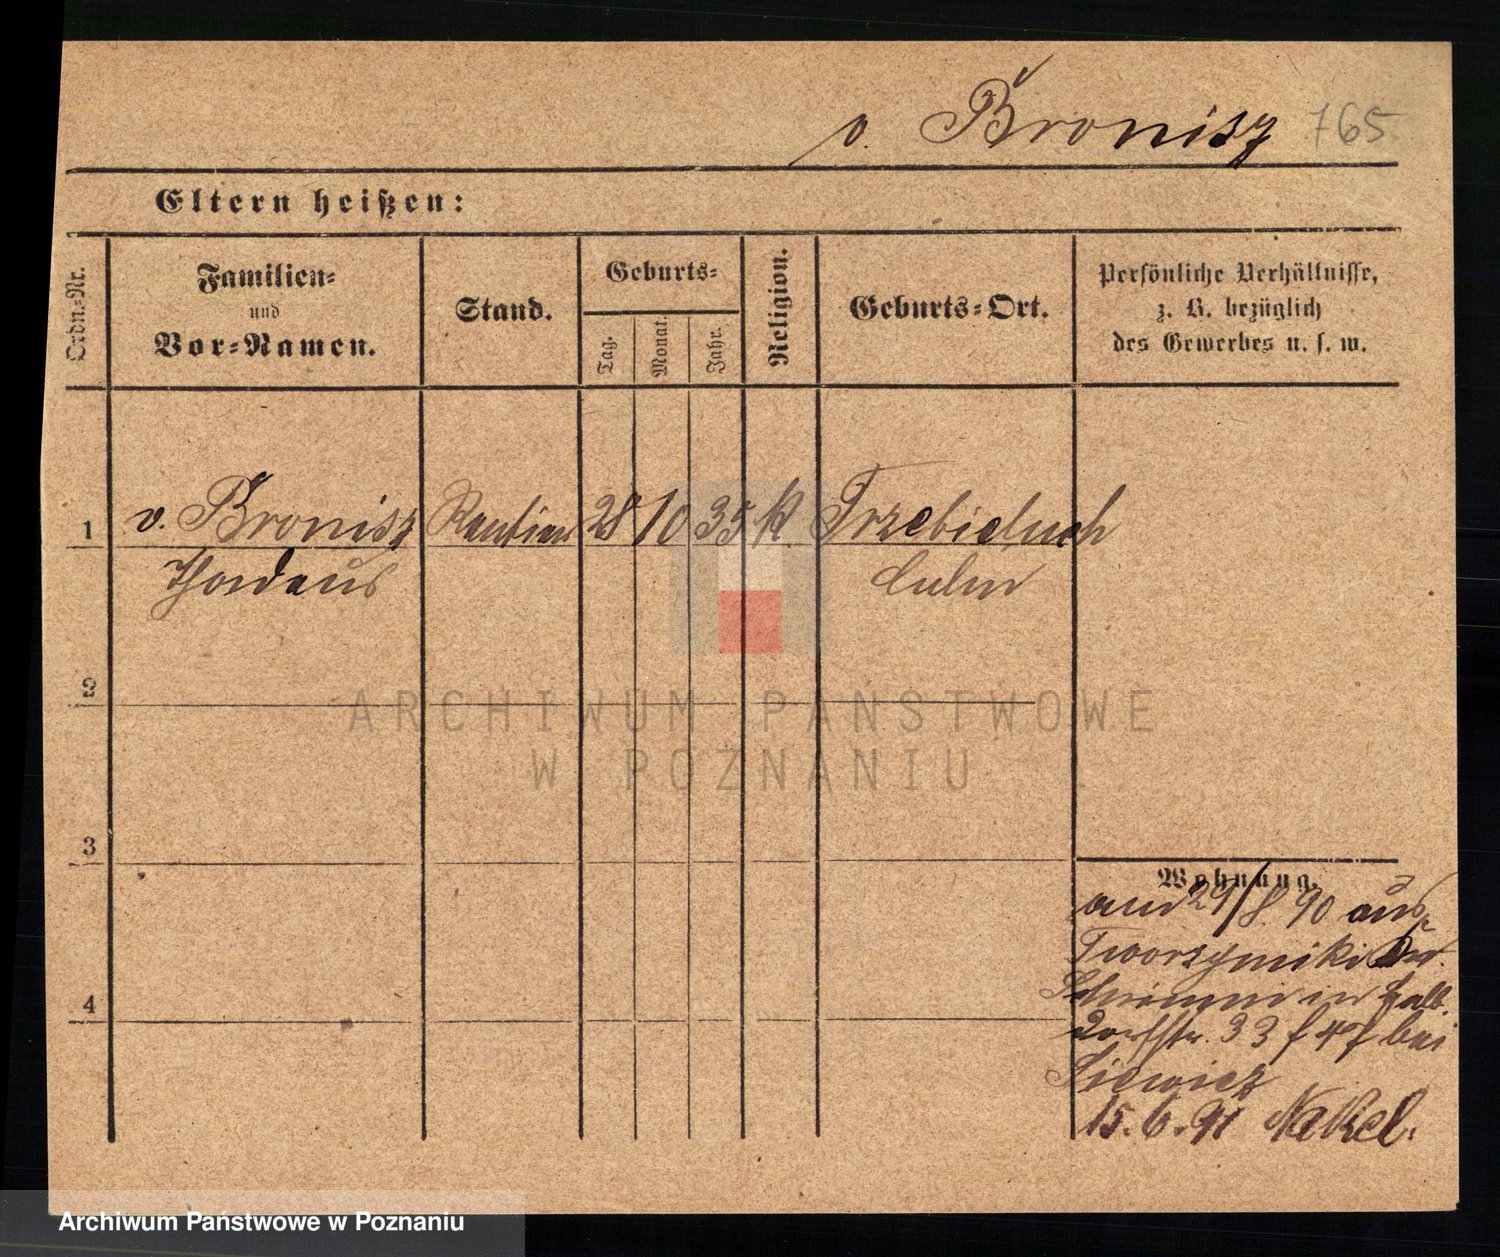 v. Bronisz 765
Eltern heißen:
Ordn.-Nr.
Familien-
und
Vor-Namen.
Stand.
Geburts-
Tag.
Monat.
Jahr.
Religion.
Geburts-Ort.
Persönliche Verhältnisse,
z. B. bezüglich
des Gewerbes u. s. w.
1 v. Bronisz Rentier 28 10 35 k Trzebieluch
Thadäus Culm
2
3
4
Wohnung.
29/8. 90 aus
33 bei
15. 6. 91 Nakel.
ARCHIWUM PAŃSTWOWE
W POZNANIU
Archiwum Państwowe w Poznaniu